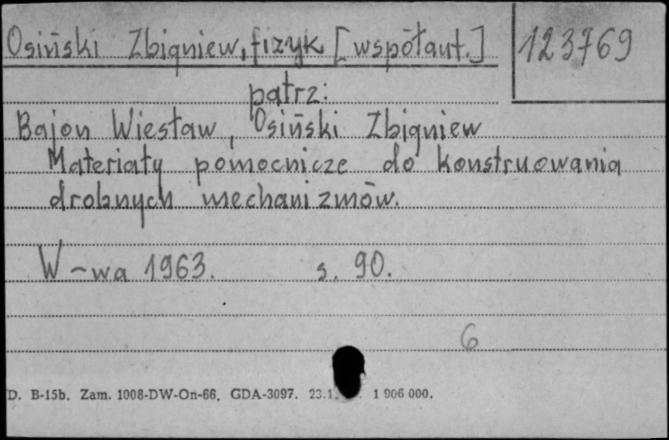 Osiński Zbigniew, fizyk [współaut.]
123769
patrz:
Bajon Wiesław, Osiński Zbigniew
Materiały pomocnicze do konstruowania
drobnych mechanizmów.
W-wa 1963. s. 90.
6
D. B-15b. Zam. 1008-DW-On-66. GDA-3097. 1 906 000.